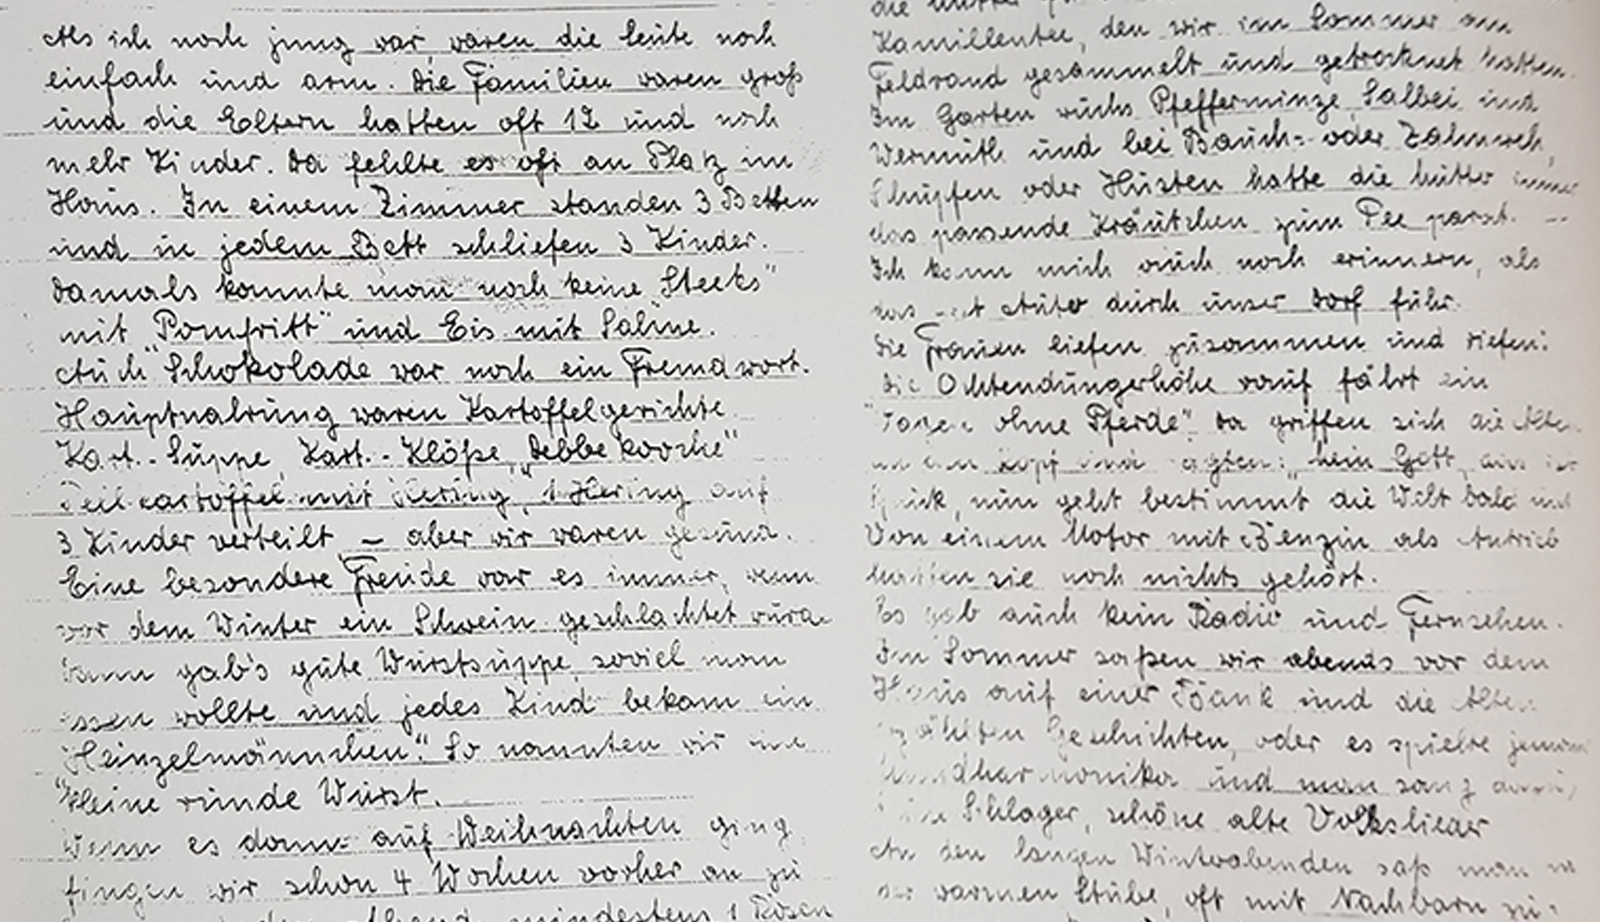 Als ich noch jung war, waren die Leute noch
einfach und arm. Die Familien waren groß
und die Eltern hatten oft 12 und noch
mehr Kinder. Da fehlte es oft an Platz im
Haus. In einem Zimmer standen 3 Betten
und in jedem Bett schliefen 3 Kinder.
Damals kannte man noch keine "Steeks"
mit "Pomfritt" und Eis mit Sahne.
Auch "Schokolade war noch ein Fremdwort.
Hauptnahrung waren Kartoffelgerichte
Kart.-Suppe, Kart.-Klöße, "Debbekooche"
mit Hering", 1 Hering auf
3 Kinder verteilt – aber wir waren gesund.
Eine besondere Freude war es immer, wenn
vor dem Winter ein Schwein geschlachtet
Dann gab's gute Wurstsuppe, soviel man
essen wollte und jedes Kind bekam ein
"Heinzelmännchen". So nannten wir eine
kleine runde Wurst.
Wenn es dann auf Weihnachten ging
fingen wir schon 4 Wochen vorher an zu
mindestens 1 Rosen
die Mutter
Kamillentee, den wir im Sommer am
Feldrand gesammelt und getrocknet hatten.
Im Garten wuchs Pfefferminze, Salbei und
Wermuth und bei Bauch- oder Zahnweh,
Schnupfen oder Husten hatte die Mutter immer
das passende Kräutchen zum Tee parat. –
Ich kann mich auch noch erinnern, als
das Auto durch unser Dorf fuhr.
Die Frauen liefen zusammen und riefen:
die Ochtendungerhöhe rauf fährt ein
ohne Pferde". Da griffen sich die Alten
an den Kopf und "Mein Gott,
nun geht bestimmt die Welt bald
Von einem Motor mit Benzin als Antrieb
hatten sie noch nichts gehört.
Es gab auch kein Radio und Fernsehen.
Im Sommer saßen wir abends vor dem
Haus auf einer Bank und die Alten
erzählten Geschichten, oder es spielte jemand
Mundharmonika und man sang
Schlager, schöne alte Volkslieder
An den langen Winterabenden saß man in
der warmen Stube, oft mit Nachbarn